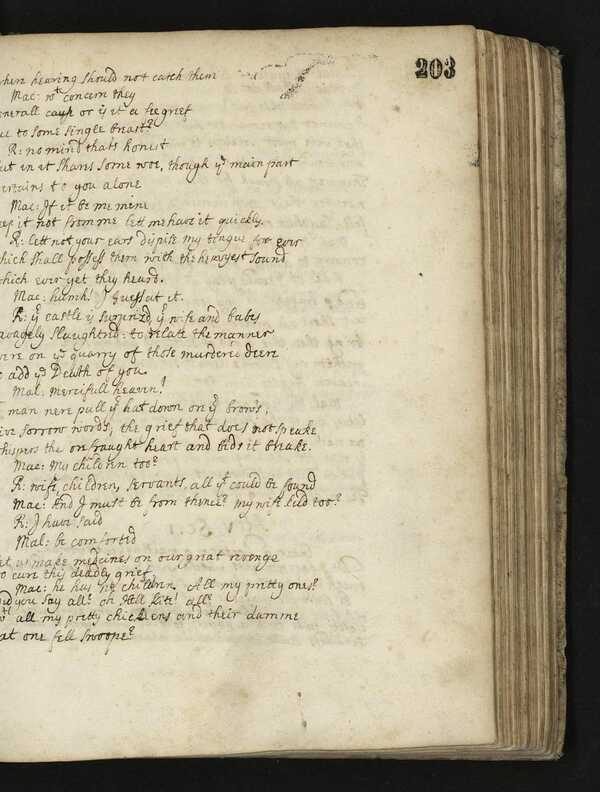 203
where hearing should not catch them
Mac: wt concern they
enerall caus or is it a fee grief
ue to some single breast?
R: no mind thats honest
ut in it shares some woe, though ye main part
ertains to you alone
Mac: If it be me mine
eep it not from me lett me have it quickly.
R: lett not your ears dispise my tongue for ever
hich shall possess them with the heavyest sound
hich ever yet they heard.
Mac: humh! I guess at it.
R: yr castle is surprizd yr wife and babes
avagely slaughtrd: to relate the manner
ere on ye quarry of these murdered deere
o add ye Death of you.
Mal: mercifull heaven!
t man nere pull yr hat down on yr brows,
ive sorrow words, the grief that does not speake
hispers the onfraught heart and bids it breake.
Mac: My children too?
R: wife, children, servants, all yt could be found
Mac: And I must be from thence? my wife kild too?
R: I have said
Mal: be comforted
et us make medcines on our great revenge
o cure this deadly grief
Mac: he has no children. All my pretty ones?
id you say all? oh Hell kite! all?
wt all my pretty chickens and their damme
at one fell swoope?